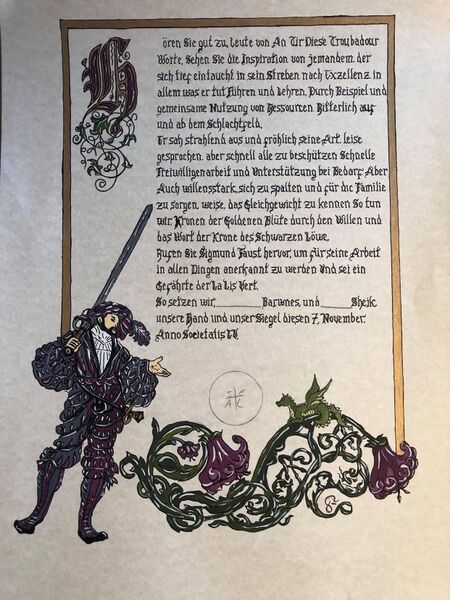 Hören Sie gut zu, Leute von An Tir Diese Troubadour
Worte, Sehen Sie die Inspiration von jemandem, der
sich tief eintaucht in sein Streben nach Exzellenz in
allem was er tut Führen und Lehren. Durch Beispiel und
gemeinsame Nutzung von Ressourcen Ritterlich auf
und ab dem Schlachtfeld.
Er sah strahlend aus und fröhlich seine Art. leise
gesprochen, aber schnell alle zu beschützen Schnelle
Freiwilligenarbeit und Unterstützung bei Bedarf. Aber
Auch willensstark, sich zu spalten und für die Familie
zu sorgen, weise, das Gleichgewicht zu kennen So tun
wir, Kronen der Goldenen Blüte durch den Willen und
das Wort der Krone des Schwarzen Löwe,
Rufen Sie Sigmund Faust hervor, um für seine Arbeit
in allen Dingen anerkannt zu werden Und sei ein
Gefährte der La Lis Vert.
So setzen wir, ________ Barwnes, und ______ Sheik
unsere Hand und unser Siegel diesen 7, November.
Anno Societatis LV.